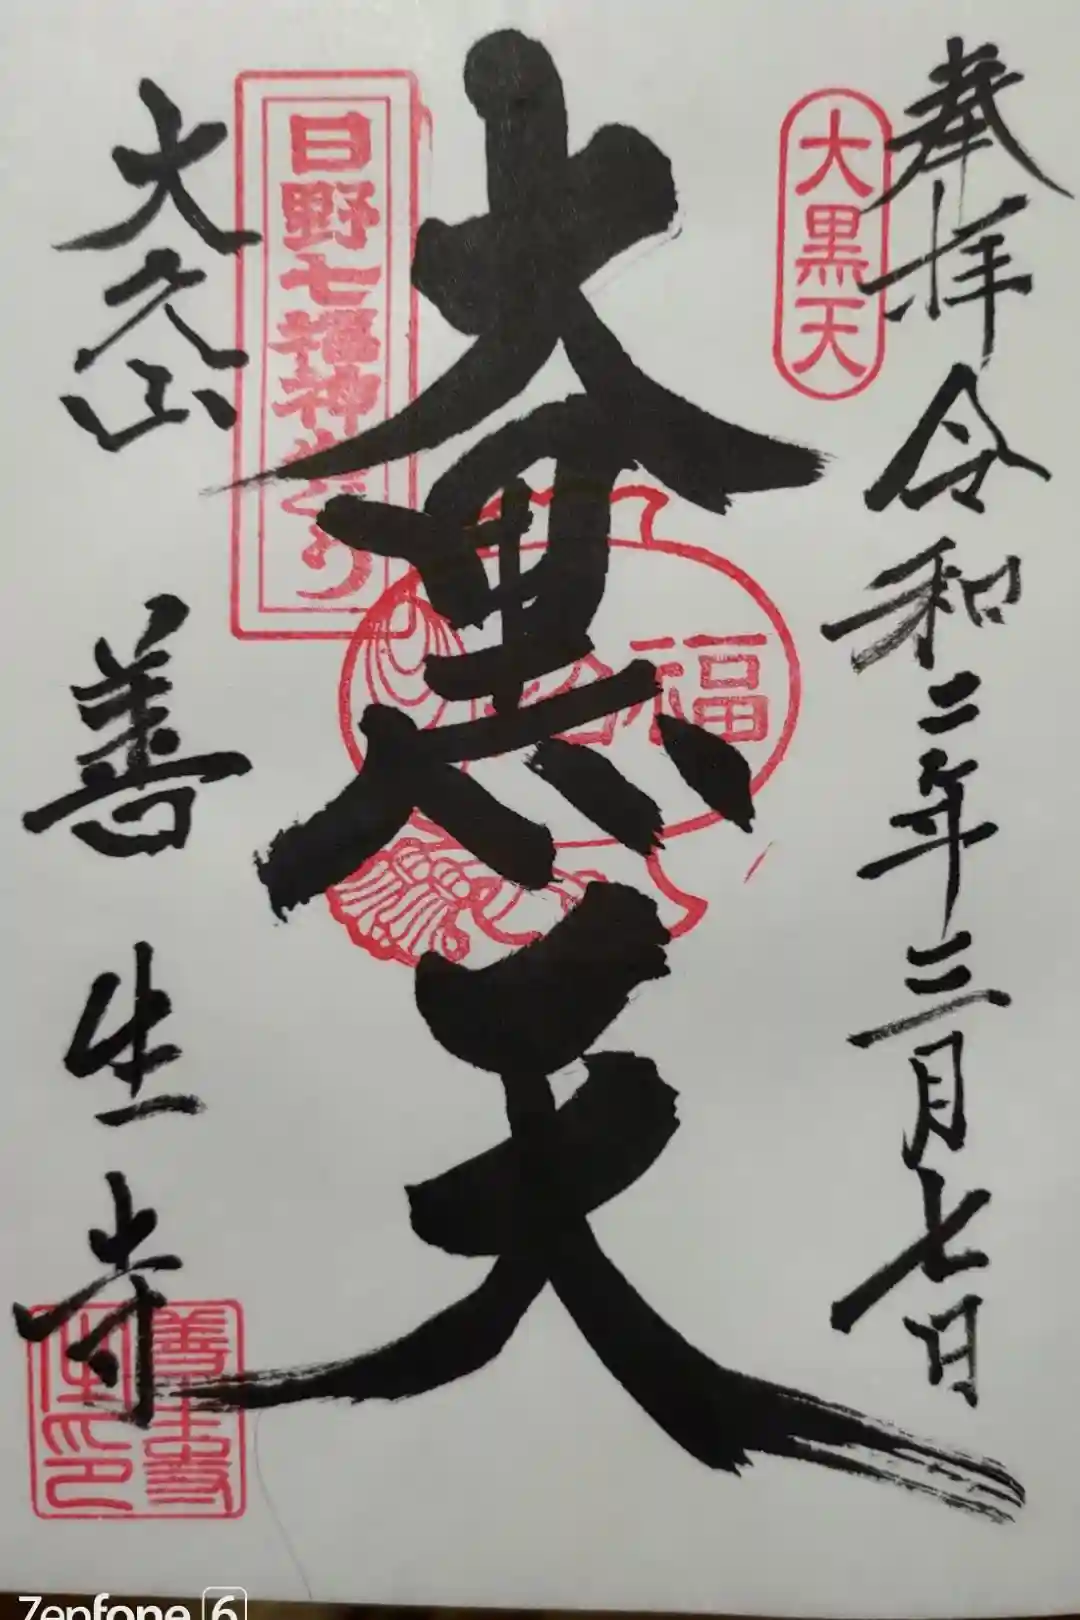 奉拝 令和二年三月七日
大黒天
大黒天
日野七福神めぐり
福
大久山 善生寺
善生寺
Zenfone 6